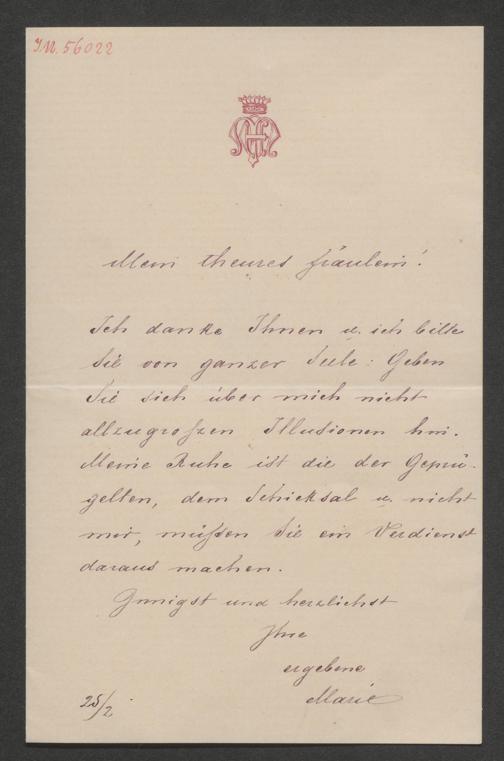 I.N. 56022
Mein theures Fräulein!
Ich danke Ihnen u. ich bitte
Sie von ganzer Seele: Geben
Sie sich über mich nicht
allzugroßen Illusionen hin.
Meine Ruhe ist die der Geprü-
gelten, dem Schicksal u. nicht
mir, müßen Sie ein Verdienst
daraus machen.
Innigst und herzlichst
Ihre
ergebene
Marie
25/2.